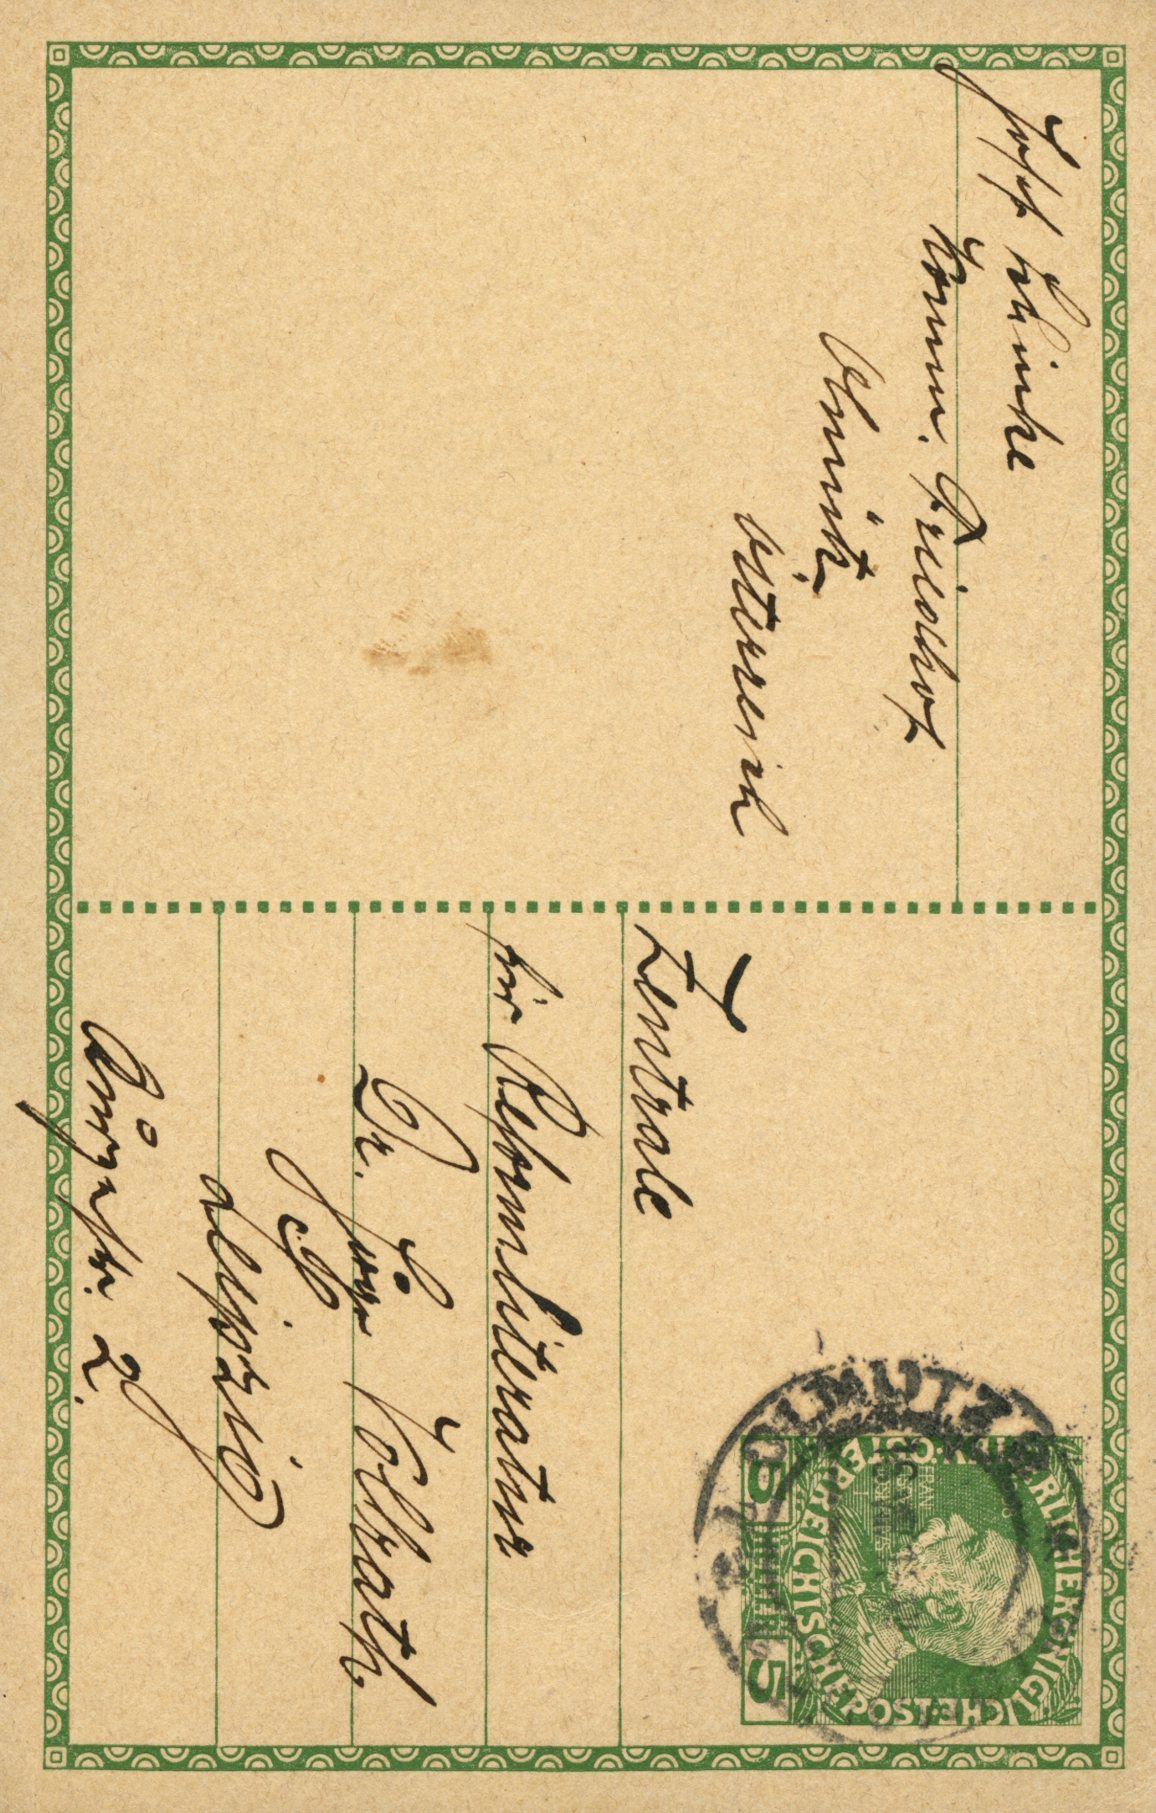 Josef Heinke
Komm. Friedhof
Olmütz
Österreich
Zentrale
für Reformliteratur
Dr. Hugo Vollrath
Leipzig
Kurzestr. 2.
OLMÜTZ
KAISERLICHE KÖNIGLICHE
ÖSTERREICHISCHE POST
5 HELLER 5